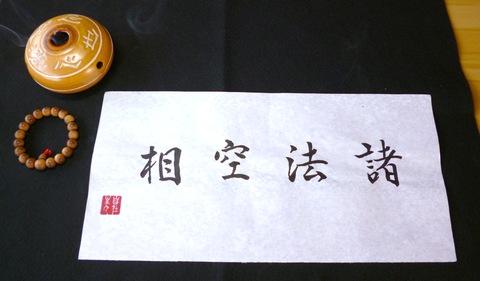 諸法空相